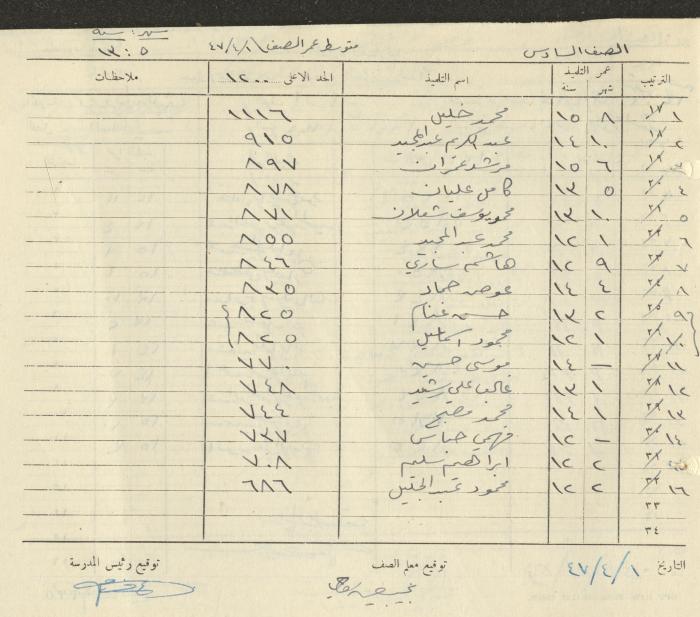 شهر : سنة
الصف السادس متوسط عمر الصف ٤٧/٤/١ ٥ : ١٣
الترتيب عمر التلميذ شهر سنة اسم التلميذ الحد الاعلى ١٢٠٠ ملاحظات
١ ٨ ١٥ محمد خليل ١١١٦
٢ ١٠ ١٤ عبد الكريم عبد المجيد ٩١٥
٣ ٦ ١٥ مرشد عمران ٨٩٧
٤ ٥ ١٣ كامل عليان ٨٧٨
٥ ١٠ ١٣ محمد يوسف شعلان ٨٧١
٦ ١ ١٢ محمد عبد المجيد ٨٥٥
٧ ٩ ١٢ هاشم ٨٤٦
٨ ٤ ١٤ عوض حماد ٨٣٥
٩ ٢ ١٣ حسن غنام ٨٢٥
١٠ ١ ١٢ محمود اسماعيل ٨٢٥
١١ — ١٤ موسى حسين ٧٧٠
١٢ ١ ١٣ غالب علي رشيد ٧٤٨
١٣ ١ ١٤ محمد مصبح ٧٤٤
١٤ — ١٢ فهمي عباس ٧٣٧
١٥ ٢ ١٢ ابراهيم سليم ٧٠٨
١٦ ٢ ١٢ محمود عبد الجليل ٦٨٦
٣٣
٣٤
التاريخ ٤٧/٤/١٠ توقيع معلم الصف توقيع رئيس المدرسة